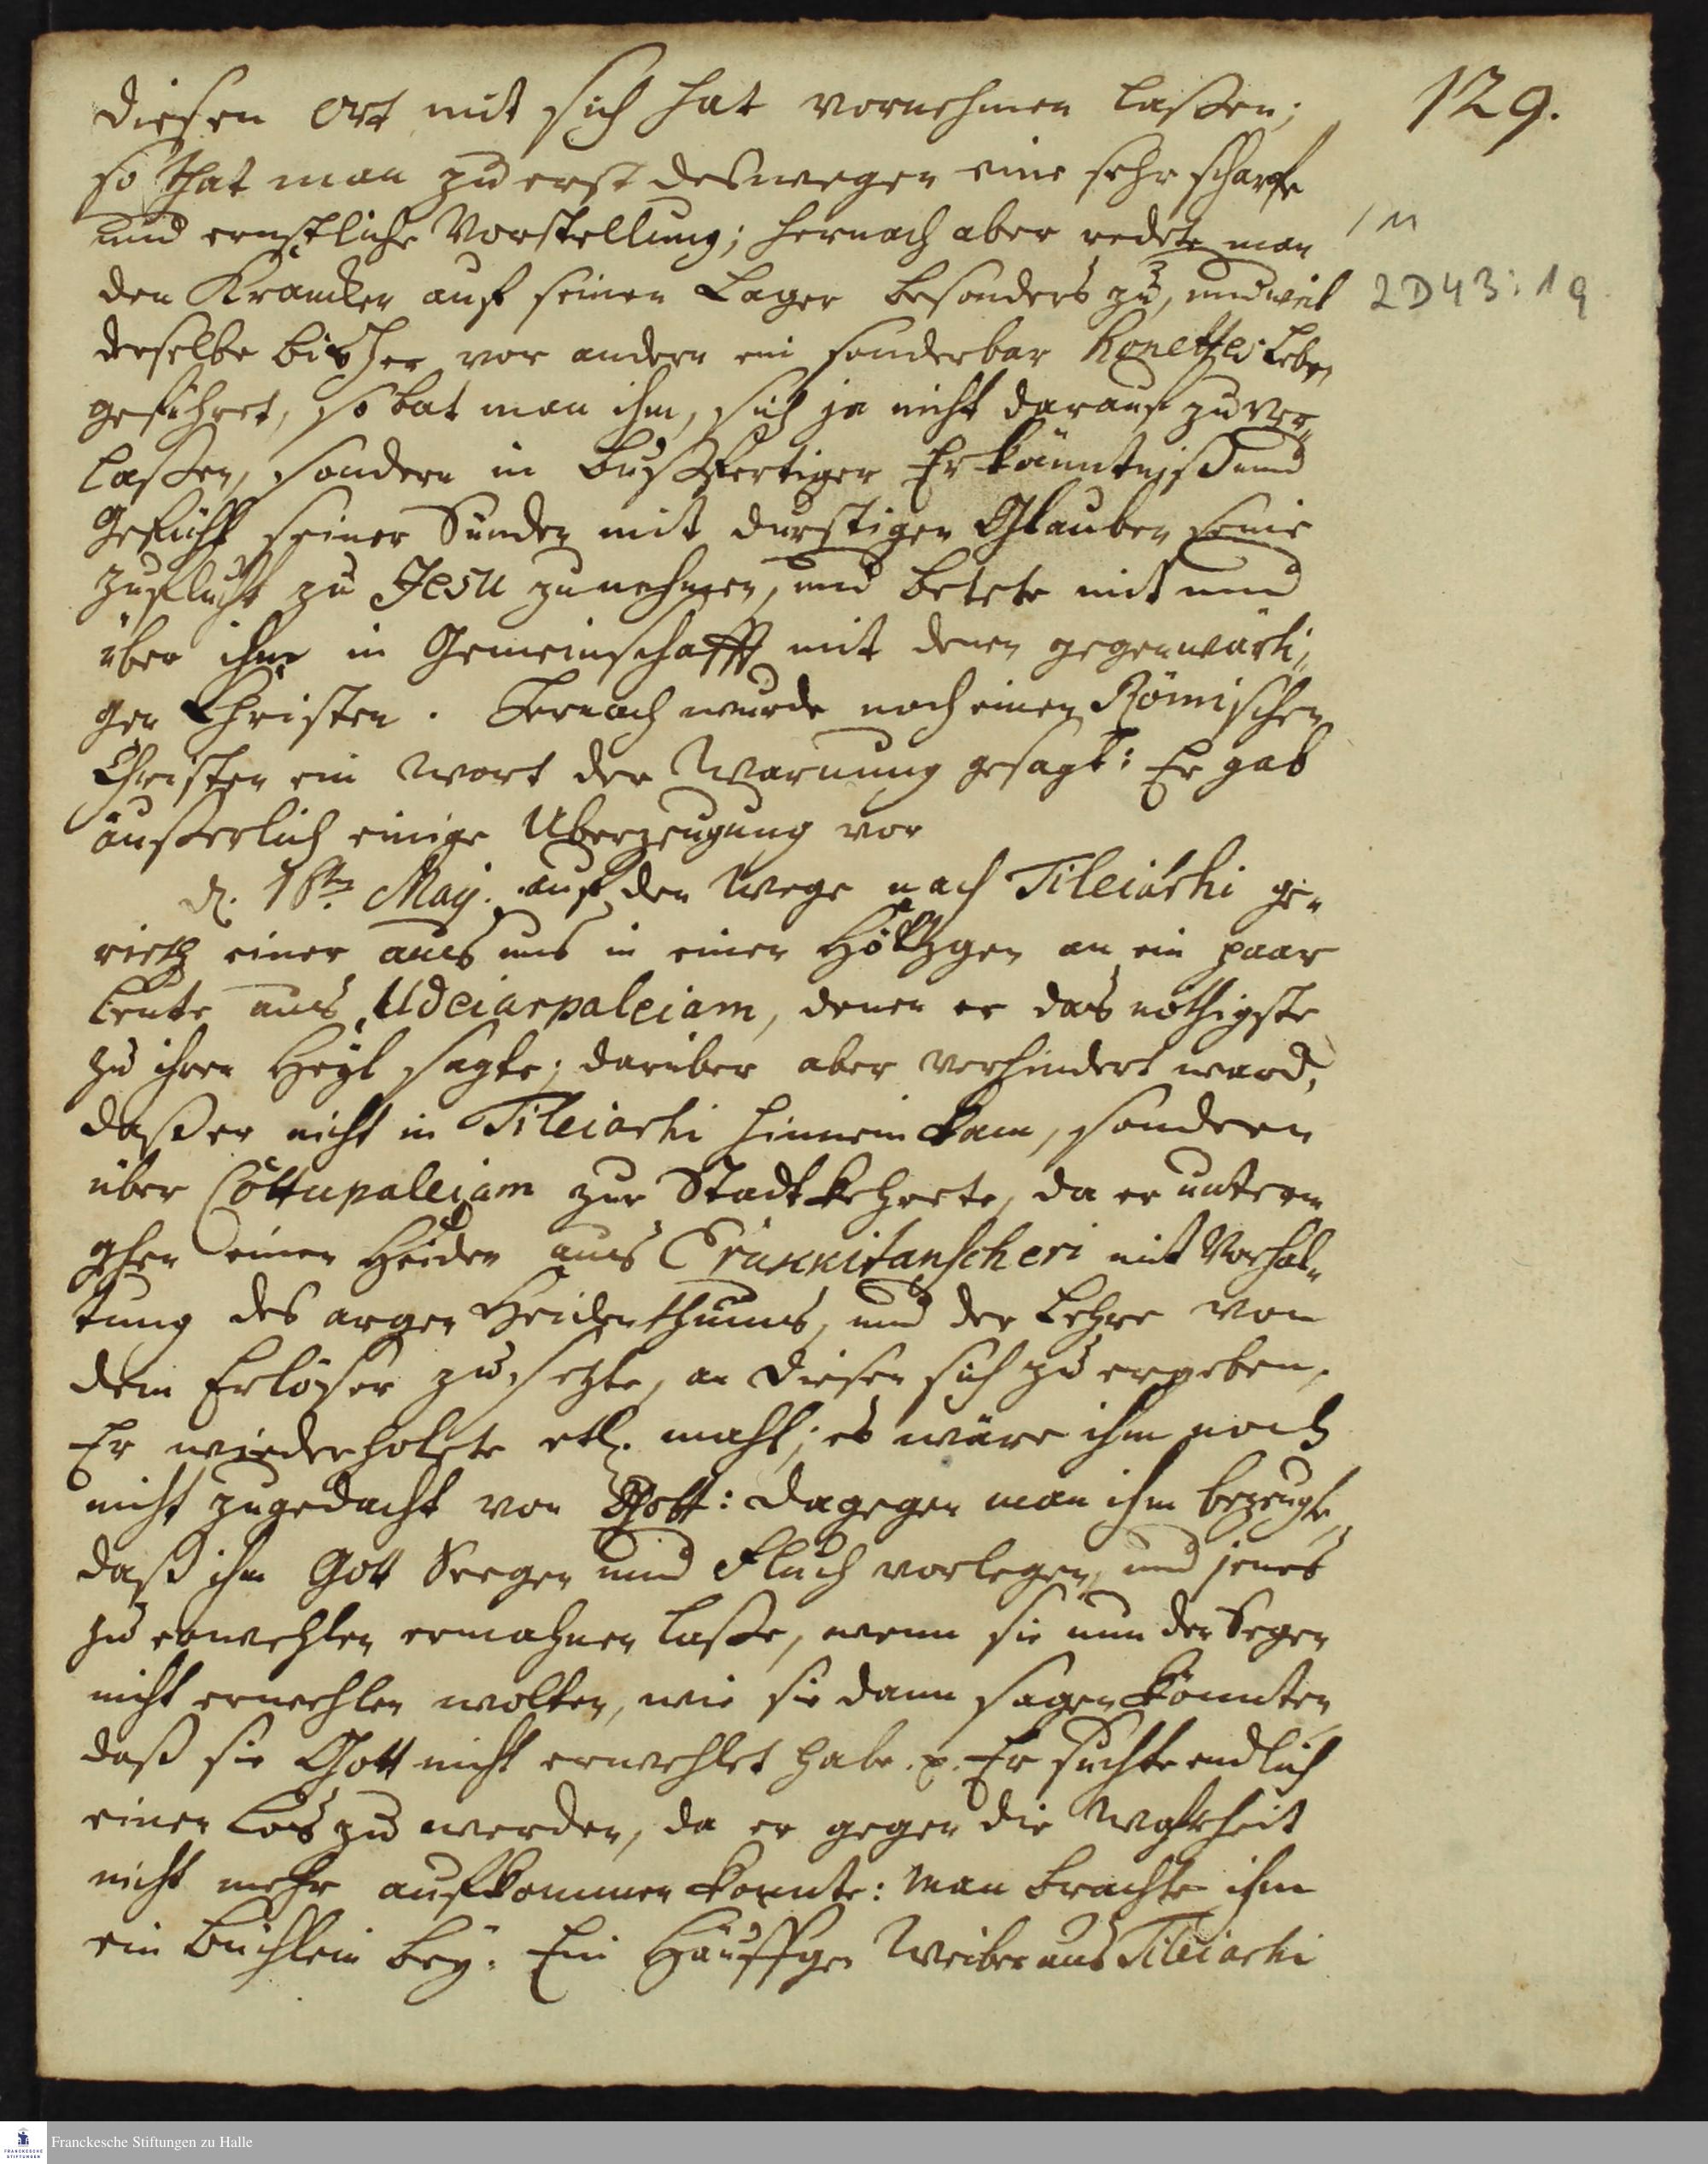 129.
diesen Ort mit sich hat vornehmen laßen;
so that man zu erst deswegen eine sehr scharfe
und ernstliche Vorstellung; hernach aber redete man
/ M
den Krancken auf seinen Lager besonders zu, und weil
2D43:19
derselbe bisher vor andern ein sonderbar honettes Leben
geführet, so bat man ihm, sich ja nicht darauf zu ver„
laßen, sondern in bußfertiger Erkäntniß und
Gefühl seiner Sünden mit durstigen Glauben seine
Zuflucht zu Jesu zu nehmen, und betete mit und
über ihm in Gemeinschafft mit denen gegenwärti„
gen Christen. Hernach wurde noch einen Römischen
Christen ein Wort der Warnung gesagt: Er gab
äußerlich einige Uberzeugung vor
d. 18ten Maij. auf den Wege nach Tileiárhi ge„
rieth einer aus uns in einen Höltzgen an ein paar
Leute aus Udeiarpaleiam, denen er das nöthigste
zu ihren Heyl sagte; darüber aber verhindert ward,
daß er nicht in Tileiarhi hinnein kam, sondern
über Cöttupaleiam zur Stadt kehrete, da er unterm
gehen einen Heiden aus Erukkitanscheri mit Vorhal„
tung des argen Heidenthums, und der Lehre von
dem Erlöser zusetzte, an diesen sich zu ergeben.
Er wiederholete etl. mahl; es wäre ihm noch
nicht zugedacht von Gott: dagegen man ihm bezeugte,
daß ihm Gott Seegen und Fluch vorlegen, und jenes
zu erwehlen ermahnen laße, wenn sie nun den Segen
nicht erwehlen wolten, wie sie dann sagen könnten
daß sie Gott nicht erwehlet habe. p. Er suchte endlich
einen los zu werden, da er gegen die Wahrheit
nicht mehr aufkommen konnte: Man brachte ihm
ein Büchlein bey. Ein Häuffgen Weiber aus Tileiarhi
Franckesche Stiftungen zu Halle